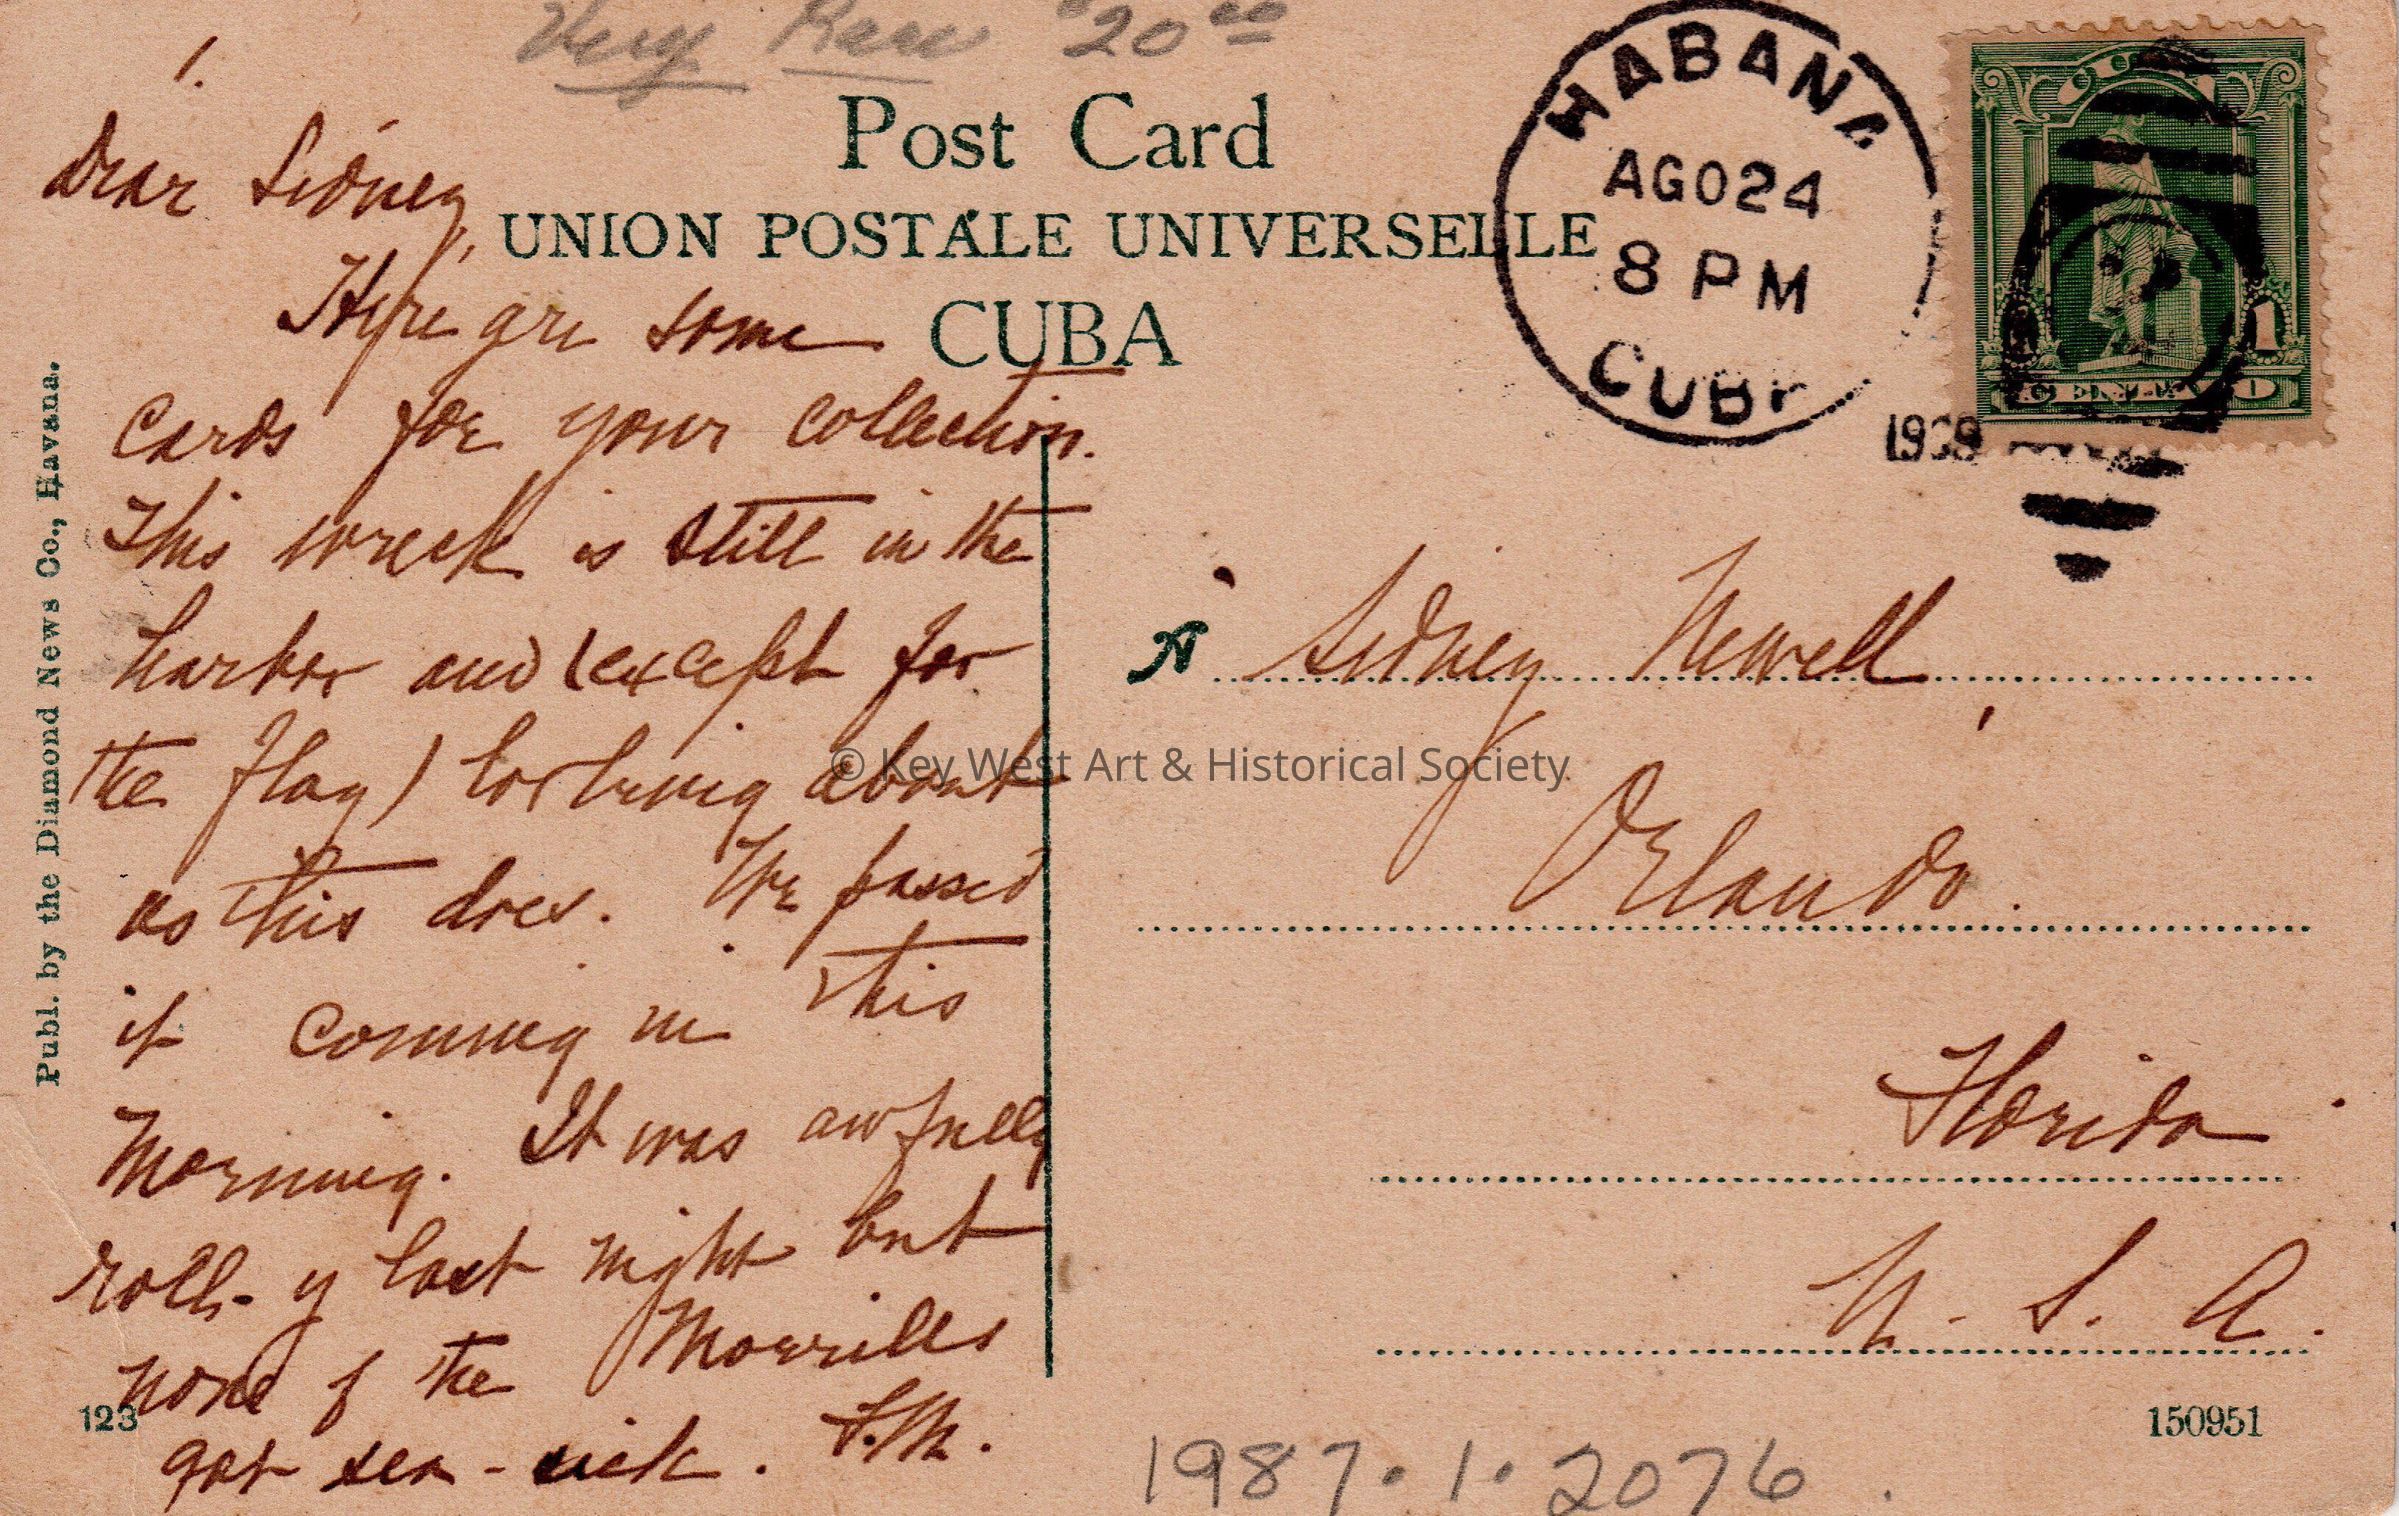 Very Rare $20 00
1.
Post Card
UNION POSTALE UNIVERSELLE
CUBA
HABANA
AGO 24
8 PM
CUBA
Publ. by the Diamond News Co., Havana.
Dear Sidney,
Here are some
cards for your collection.
This wreck is still in the
harbor and (except for
the flag) looking about
as this does. We passed
it coming in this
morning. It was awfully
roll-y last night but
none of the Morrills
got sea-sick. F.M.
A Sidney Newell,
Orlando.
Florida
U. S. A.
© Key West Art & Historical Society
123
150951
1987.1.2076